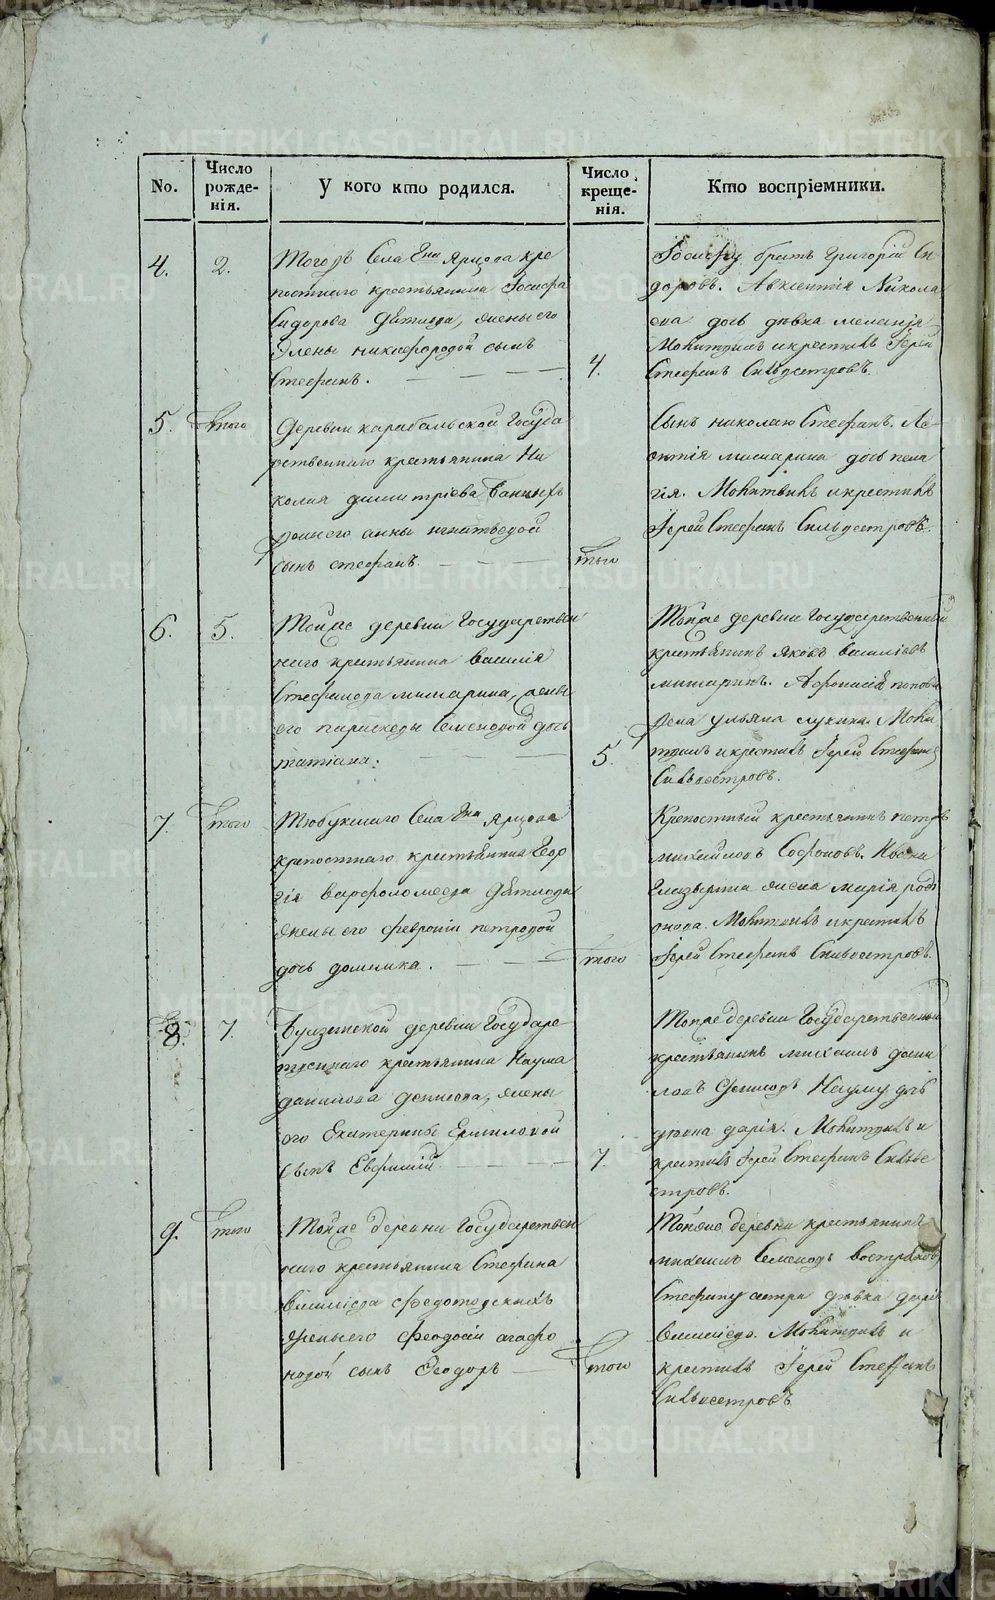 No.
Число
рожде-
нія.
У кого кто родился.
Число
креще-
нія.
Кто воспріемники.
4.
2.
Тогожъ Села Гна Ярцова кре
постнаго крестьянина Іосифа
Сидорова Свѣтлова, жены его
Елены никифоровой сынъ
Стефанъ.
4.
Іосифу братъ Григорій Си
доровъ. Авксентія Никола
ева дочь дѣвка меланія
Молитвилъ и крестилъ Іерей
Стефанъ Сильвестровъ.
5.
того
Деревни карабольской Госуда
рственнаго крестьянина Ни
колая димитріева
жены его анны игнатьевой
сынъ стефанъ.
того
Сынъ николаю Стефанъ. Ле
онтія мишарина дочь пела
гія. Молитвилъ и крестилъ
Іерей Стефанъ Сильвестровъ.
6.
5.
Тойже деревни Государствен
наго крестьянина василія
Стефанова мишарина, жены
его парискевы Семеновой дочь
татіана.
5.
Тойже деревни Государственный
крестьянинъ яковъ василіевъ
мишаринъ. Афонасія попова
жена ульяна Моли
твилъ и крестилъ Іерей Стефанъ
Сильвестровъ.
7.
того
Тюбукскаго Села Гна Ярцова
крепостнаго крестьянина Геор
гія варфоломеева Свѣтлова
жены его февроніи петровой
дочь домника.
того
Крепостный крестьянинъ петръ
михайловъ Софоновъ.
Глазырина жена марія роді
онова. Молитвилъ и крестилъ
Іерей Стефанъ Сильвестровъ.
8.
7.
деревни Государс
твеннаго крестьянина Наума
данилова денисова, жены
его Екатерины Ермиловой
сынъ Евфимій.
7.
Тойже деревни Государственный
крестьянинъ михаилъ дани
ловъ денисовъ Науму дочь
дѣвка дарія. Молитвилъ и
крестилъ Іерей Стефанъ Сильве
стровъ.
9.
того
Тойже деревни Государствен
наго крестьянина Стефана
василіева федотовскихъ
жены его феодосіи агафо
новой сынъ Феодоръ
того
Тойже деревни крестьянинъ
михаилъ Семеновъ востряковъ,
Стефану сестра дѣвка дарія
василіева. Молитвилъ и
крестилъ Іерей Стефанъ
Сильвестровъ
METRIKI.GASO-URAL.RU